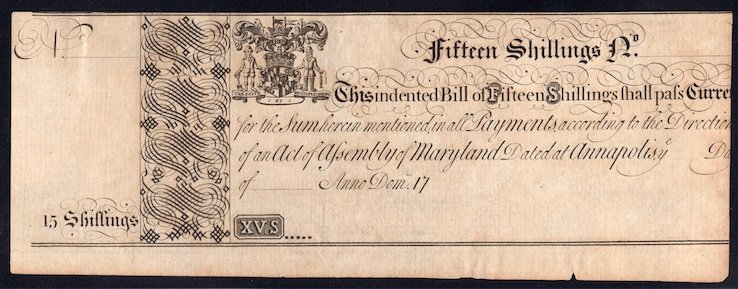 Nº
Fifteen Shillings Nº.
This indented Bill of Fifteen Shillings shall pass Curre
for the Sum herein mentioned, in all Payments, according to the Direction
of an Act of Assembly of Maryland Dated at Annapolis, yᵉ Da
of Anno Dom. 17
15 Shillings
XVS